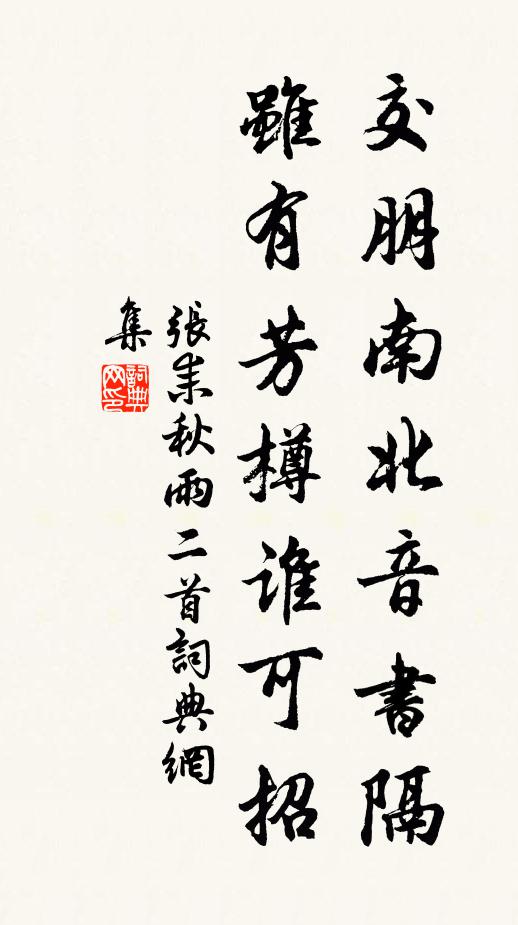 交朋南北音書隔
雖有芳樽誰可招
張耒秋雨二首詞典網
集
詞典
网印